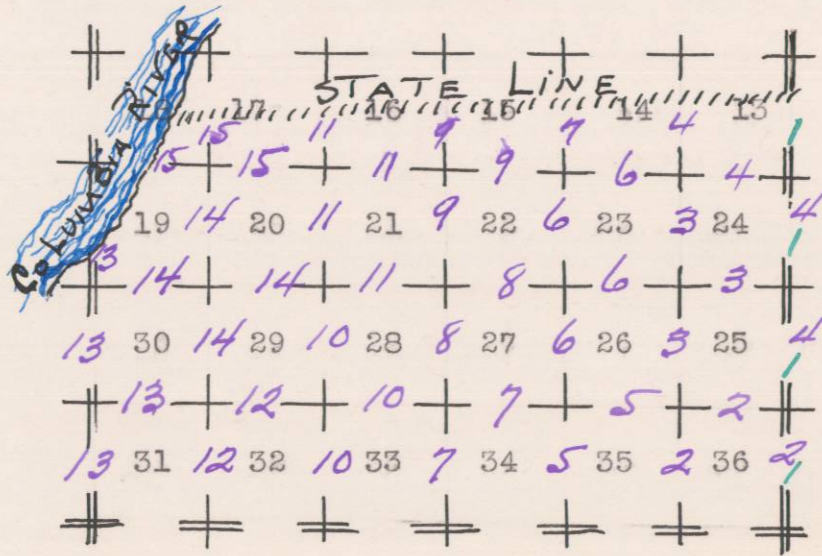 COLUMBIA RIVER
STATE LINE
18 17 16 15 14 13
15 11 9 7 4 1
15 15 11 9 6 4
19 14 20 11 21 9 22 6 23 3 24 4
13 1
14 14 11 8 6 3
13 30 14 29 10 28 8 27 6 26 3 25 4
1
13 12 10 7 5 2
13 31 12 32 10 33 7 34 5 35 2 36 2
1